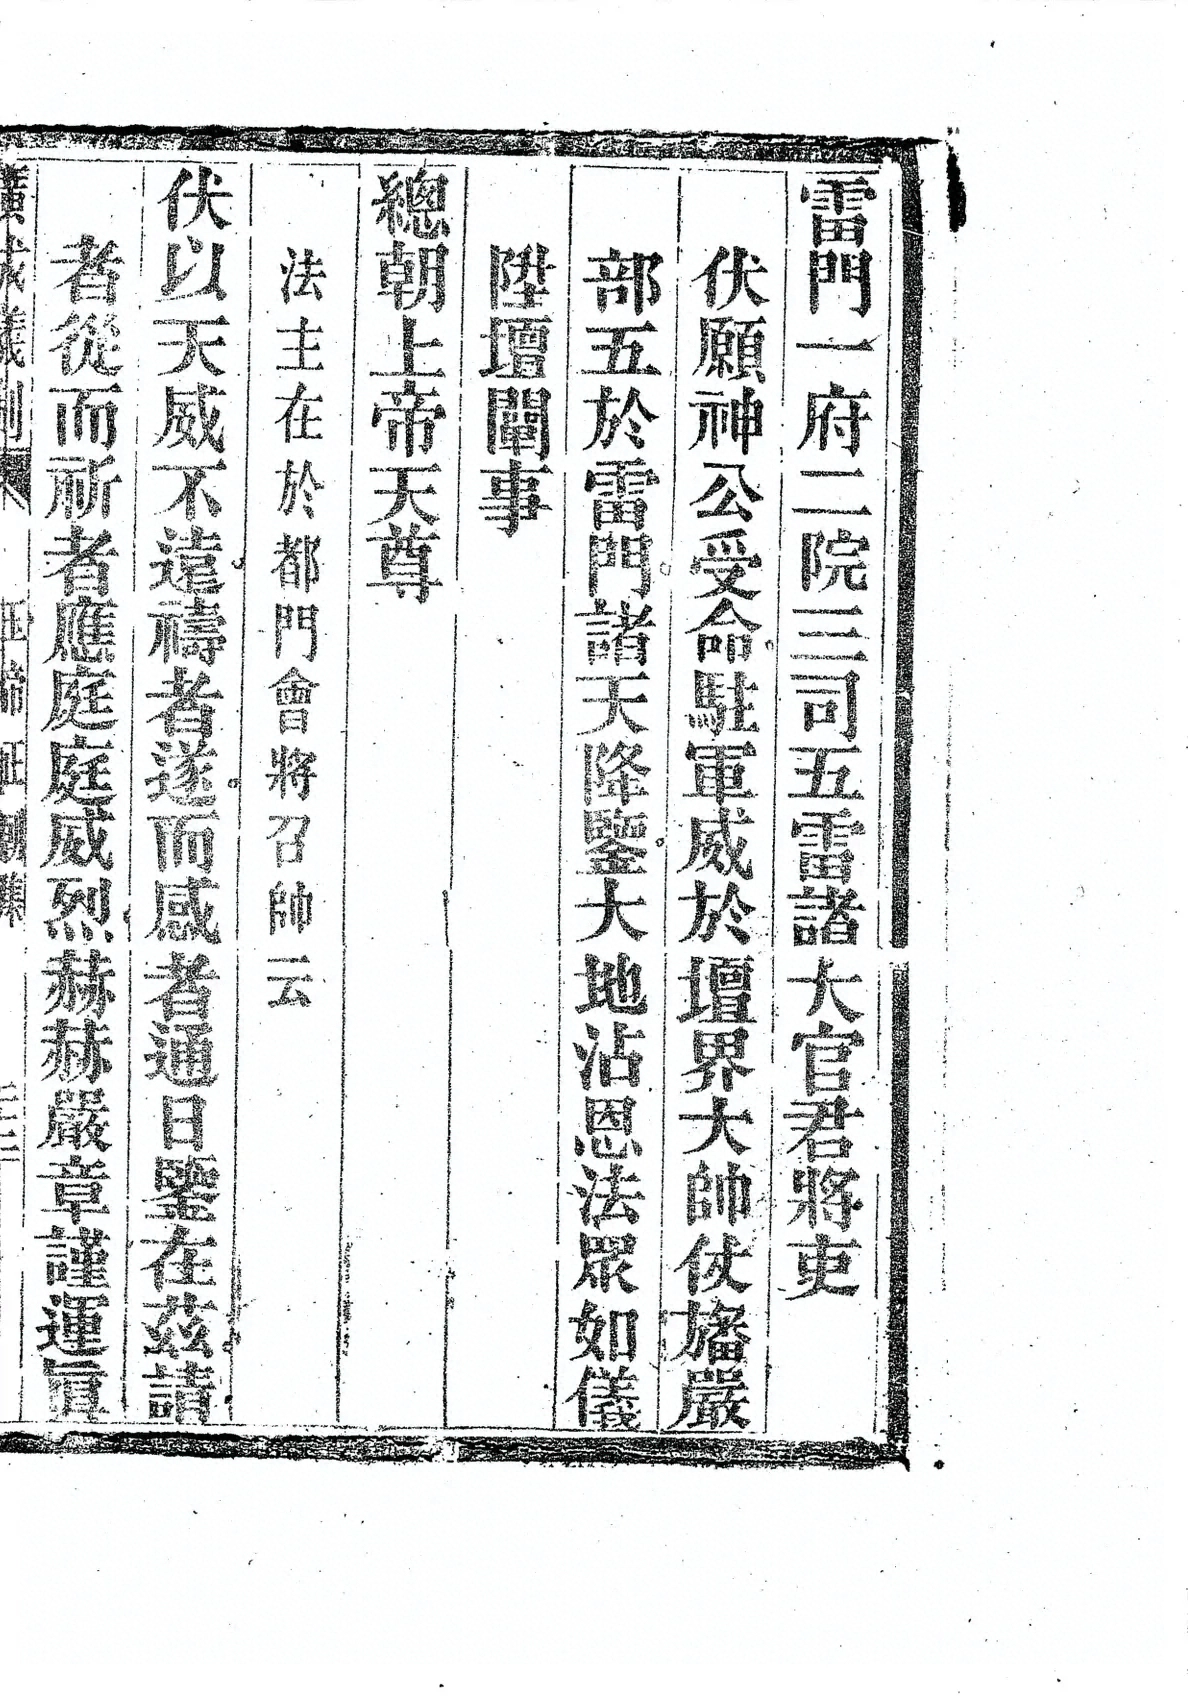 雷門一府二院三司五雷諸大官君將吏
伏願神公受命駐軍威於壇界大帥仗旛嚴
部五於雷門諸天降鑒大地沾恩法眾如儀
陞壇闡事
總朝上帝天尊
法主在於都門會將召帥云
伏以天威不遠禱者遂而感者通日鑒在茲請
者從而祈者應庭庭威烈赫赫嚴章謹運眞
廣成儀制